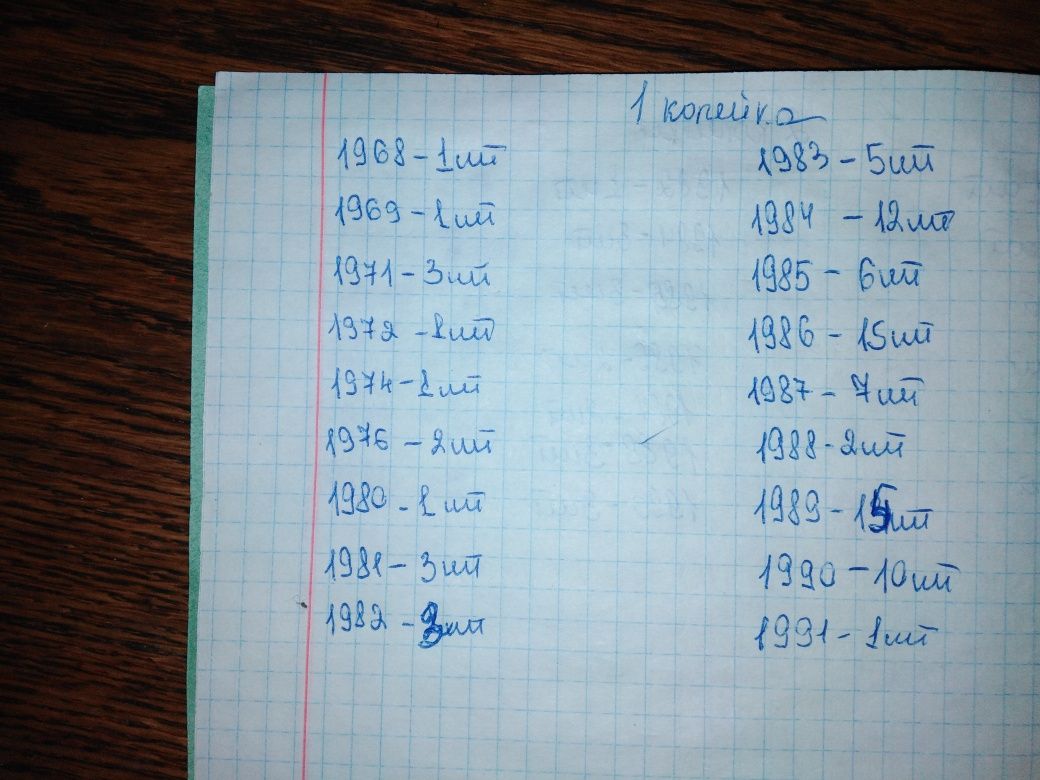 1 копейка
1968 - 1шт
1969 - 1шт
1971 - 3шт
1972 - 1шт
1974 - 1шт
1976 - 2шт
1980 - 1шт
1981 - 3шт
1982 - 3шт
1983 - 5шт
1984 - 12шт
1985 - 6шт
1986 - 15шт
1987 - 7шт
1988 - 2шт
1989 - 15шт
1990 - 10шт
1991 - 1шт